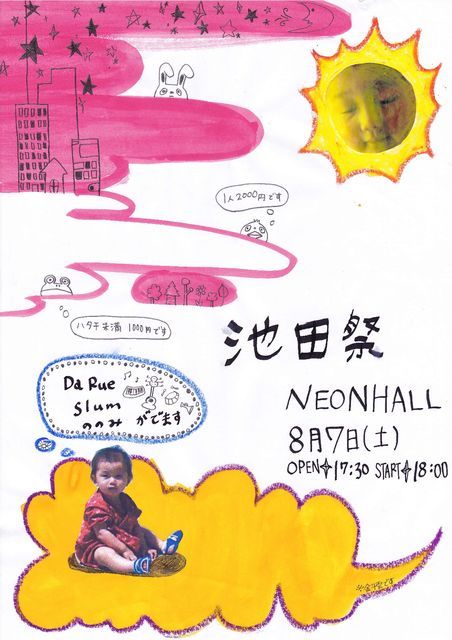 1人2000円です
ハタチ未満 1000円です
池田祭
Da Rue
Slum
ののみ がでます
NEONHALL
8月7日(土)
OPEN 17:30 START 18:00